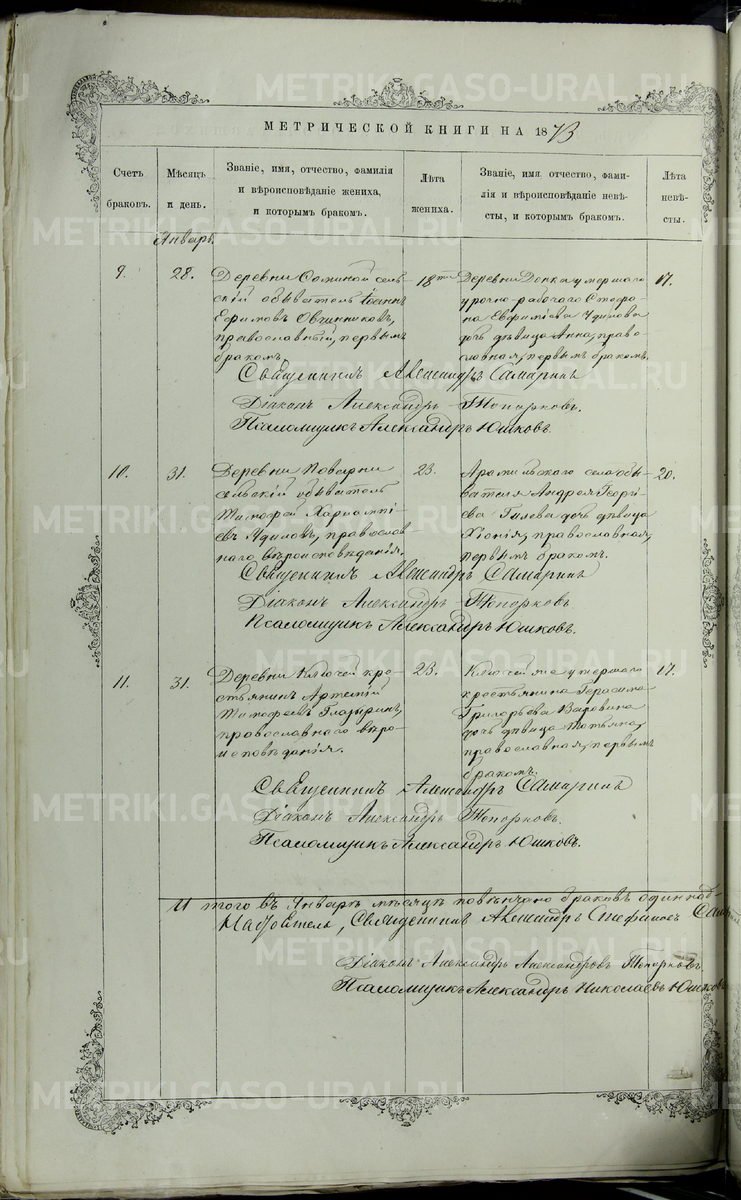 МЕТРИЧЕСКОЙ КНИГИ НА 1873
Счетъ браковъ.
Мѣсяцъ и день.
Званіе, имя, отчество, фамилія и вѣроисповѣданіе жениха, и которымъ бракомъ.
Лѣта жениха.
Званіе, имя, отчество, фамилія и вѣроисповѣданіе невѣсты, и которымъ бракомъ.
Лѣта невѣсты.
Январь.
9.
28.
Деревни
сельскій обыватель Іоаннъ
Ефимовъ Овчинниковъ,
православный, первымъ
бракомъ
18
Деревни умершаго
урочно-рабочаго Стефана
Евфиміева
дочь дѣвица Анна, православная,
первымъ бракомъ.
17.
Священникъ Александръ Самаринъ
Діаконъ Александръ Топорковъ.
Псаломщикъ Александръ Юшковъ.
10.
31.
Деревни Поварни
сельскій обыватель
Тимофей Харлампіевъ
православнаго вѣроисповѣданія.
23.
Арамильскаго села обывателя
Андрея Георгіева
Гилева дочь дѣвица
Хіонія, православная,
первымъ бракомъ.
20.
Священникъ Александръ Самаринъ
Діаконъ Александръ Топорковъ
Псаломщикъ Александръ Юшковъ.
11.
31.
Деревни Ключей крестьянинъ
Артемій
Тимофеевъ Глазыринъ,
православнаго вѣроисповѣданія.
23.
Ключей же умершаго
крестьянина Герасима
Григорьева
дочь дѣвица Татьяна,
православная, первымъ
бракомъ.
17.
Священникъ Александръ Самаринъ
Діаконъ Александръ Топорковъ.
Псаломщикъ Александръ Юшковъ.
Итого въ Январѣ мѣсяцѣ повѣнчано браковъ одиннад-
Настоятель, Священникъ Александръ Стефановъ
Діаконъ Александръ Александровъ Топорковъ.
Псаломщикъ Александръ Николаевъ Юшковъ
METRIKI.GASO-URAL.RU